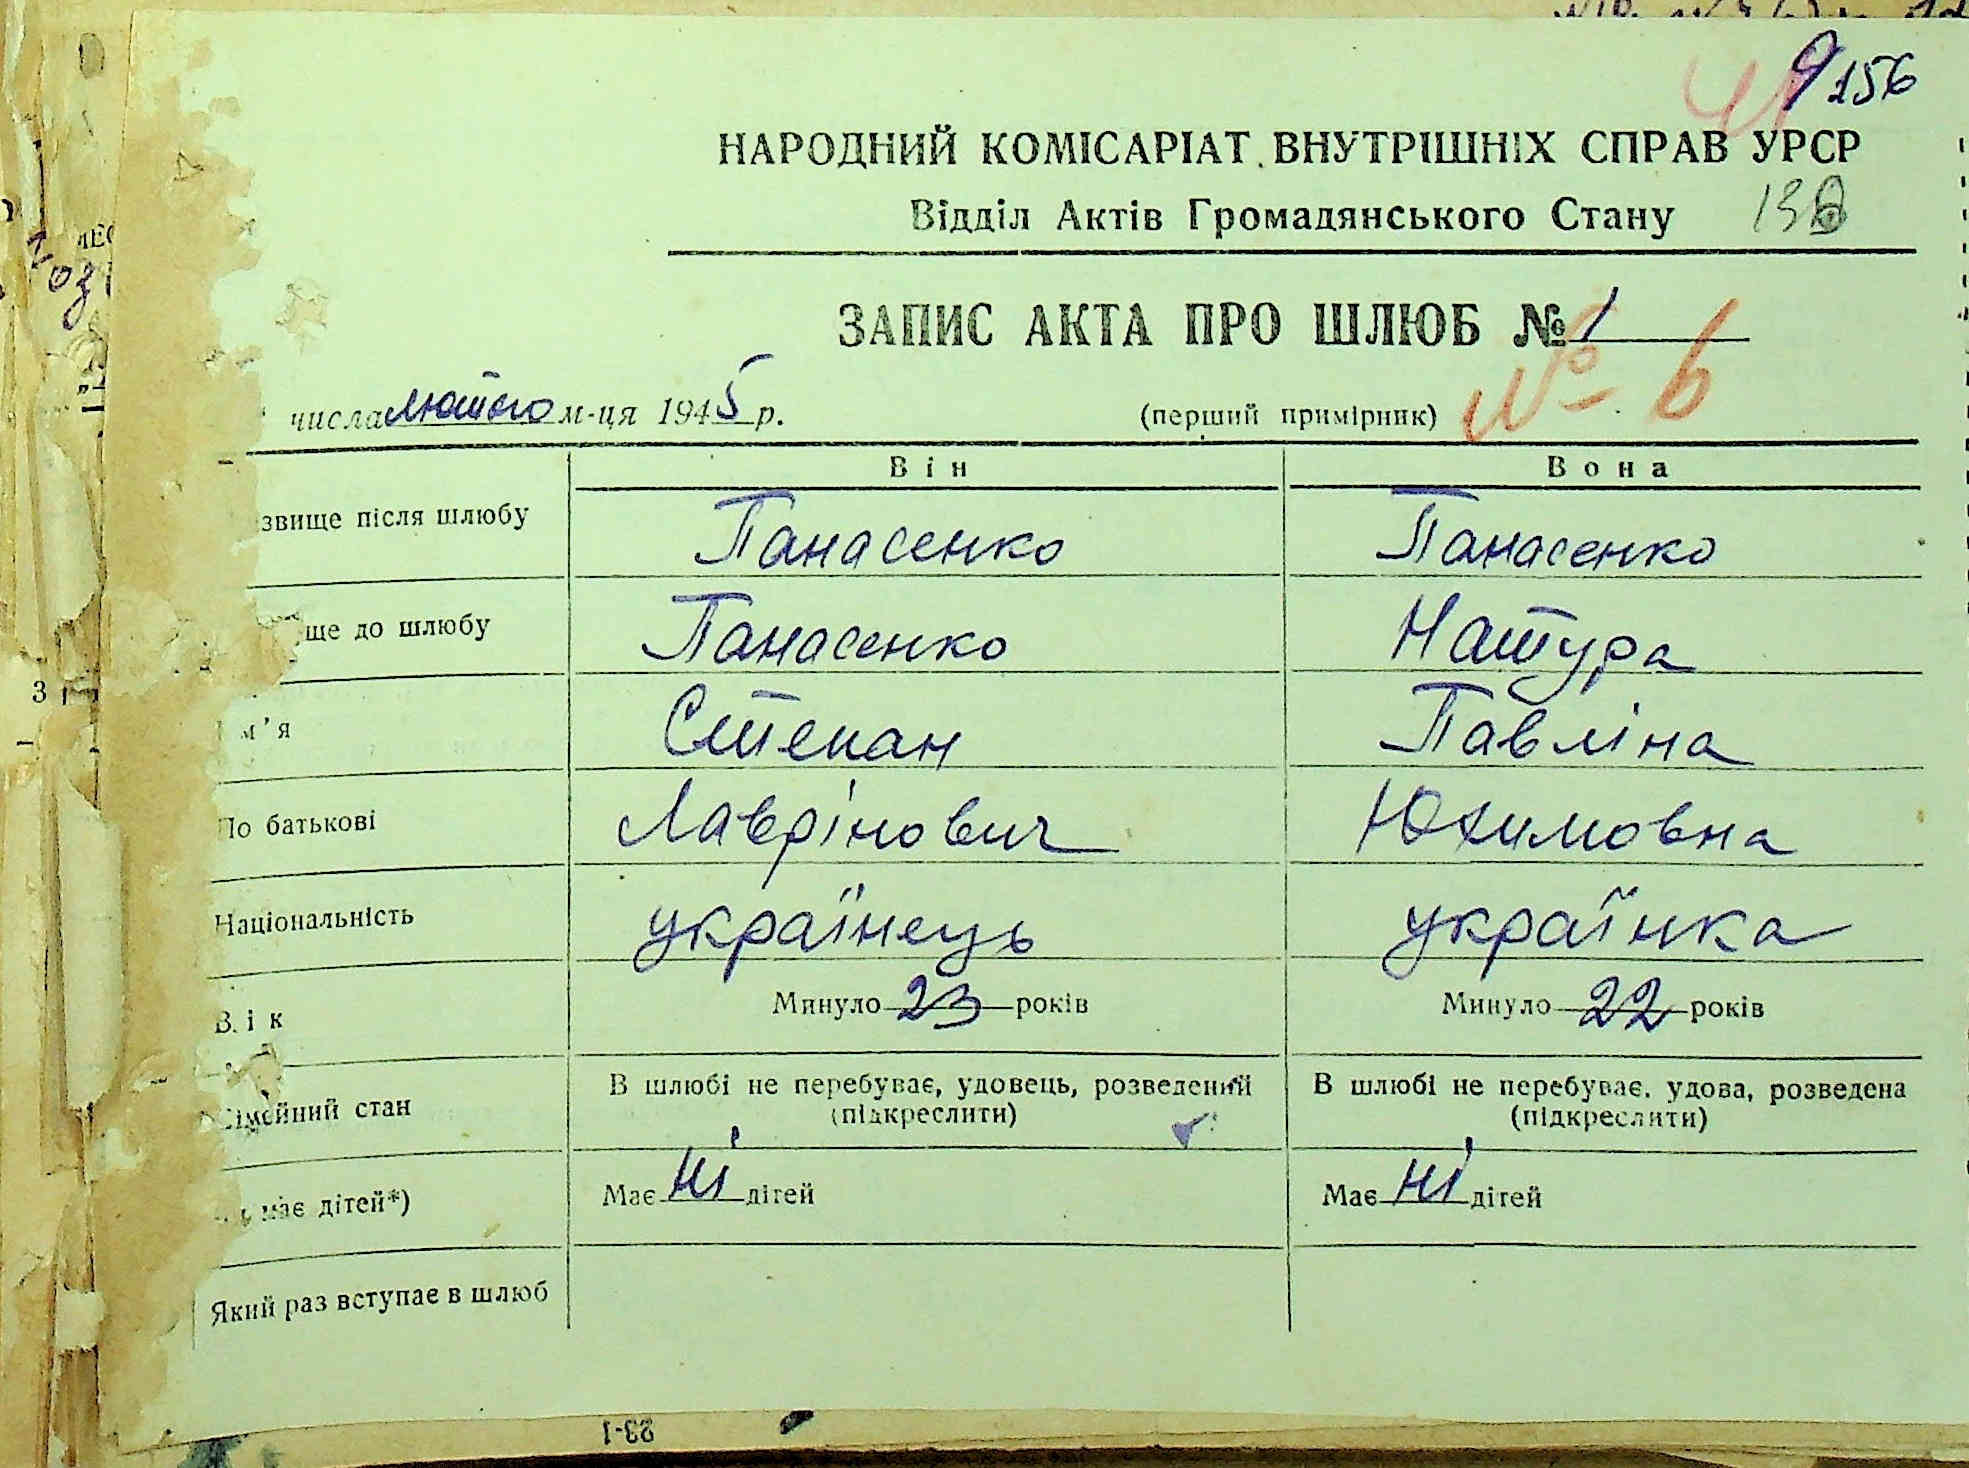 9 156
НАРОДНИЙ КОМІСАРІАТ ВНУТРІШНІХ СПРАВ УРСР
Відділ Актів Громадянського Стану
ЗАПИС АКТА ПРО ШЛЮБ № 1
числа лютого м-ця 1945 р. (перший примірник) № 6
Він Вона
звище після шлюбу Панасенко Панасенко
ще до шлюбу Панасенко Натура
м'я Степан Павліна
По батькові Лаврінович Юхимовна
Національність українець українка
Вік Минуло 23 років Минуло 22 років
Сімейний стан В шлюбі не перебуває, удовець, розведений В шлюбі не перебуває, удова, розведена
(підкреслити) (підкреслити)
має дітей*) Має ні дітей Має ні дітей
Який раз вступає в шлюб
23-1